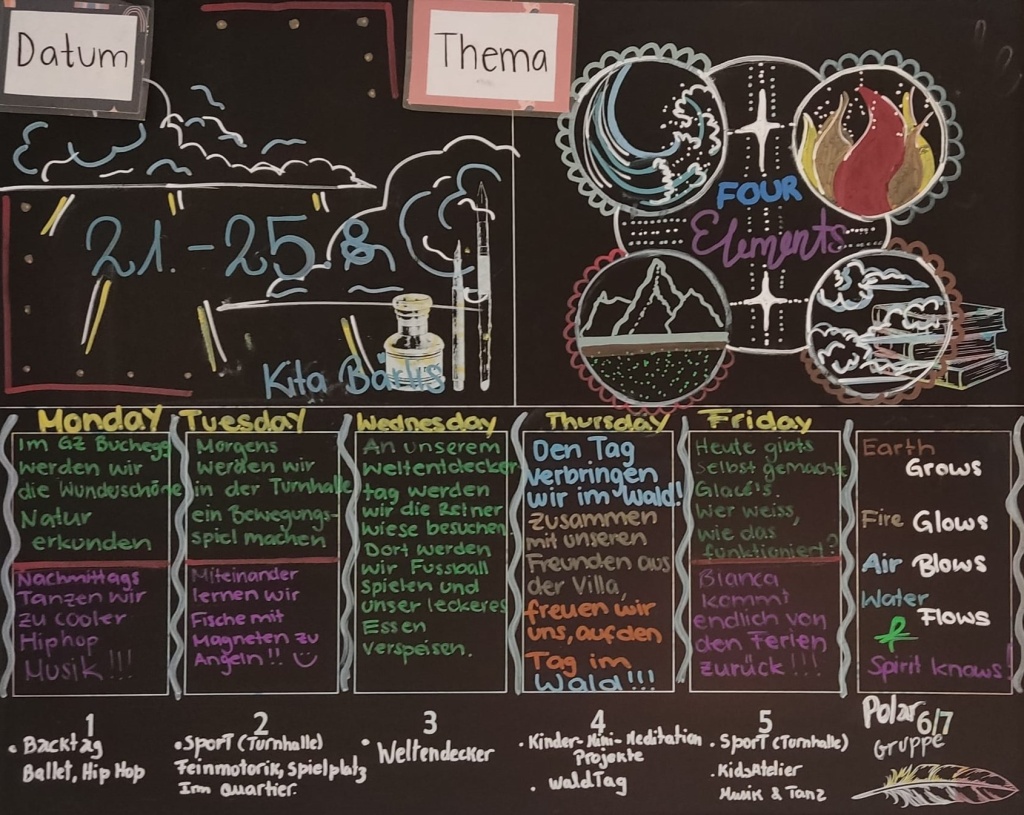 Datum
21.-25.8
Kita Bärlis
Thema
FOUR
Elements
Monday
Im GZ Buchegg
werden wir
die Wunderschöne
Natur
erkunden
Nachmittags
Tanzen wir
zu cooler
Hiphop
Musik!!!
Tuesday
Morgens
werden wir
in der Turnhalle
ein Bewegungs-
spiel machen
Miteinander
lernen wir
Fische mit
Magneten zu
Angeln!!
Wednesday
An unserem
weltentdecker
tag werden
wir die
wiese besuchen.
Dort werden
wir Fussball
spielen und
unser leckeres
Essen
verspeisen.
Thursday
Den Tag
verbringen
wir im Wald!
Zusammen
mit unseren
Freunden aus
der Villa,
freuen wir
uns, auf den
Tag im
Wald!!!
Friday
Heute gibts
Selbst gemachte
Glacé's.
Wer weiss,
wie das
funktioniert?
Bianca
kommt
endlich von
den Ferien
zurück!!!
Earth
Grows
Fire Glows
Air Blows
Water
Flows
&
Spirit knows!
1
• Backtag
Ballet, Hip Hop
2
• Sport (Turnhalle)
Feinmotorik, Spielplatz
Im Quartier.
3
• Weltendecker
4
• Kinder-Mini-Meditation
Projekte
• WaldTag
5
• Sport (Turnhalle)
• KidsAtelier
Musik & Tanz
Polar 6/7
Gruppe